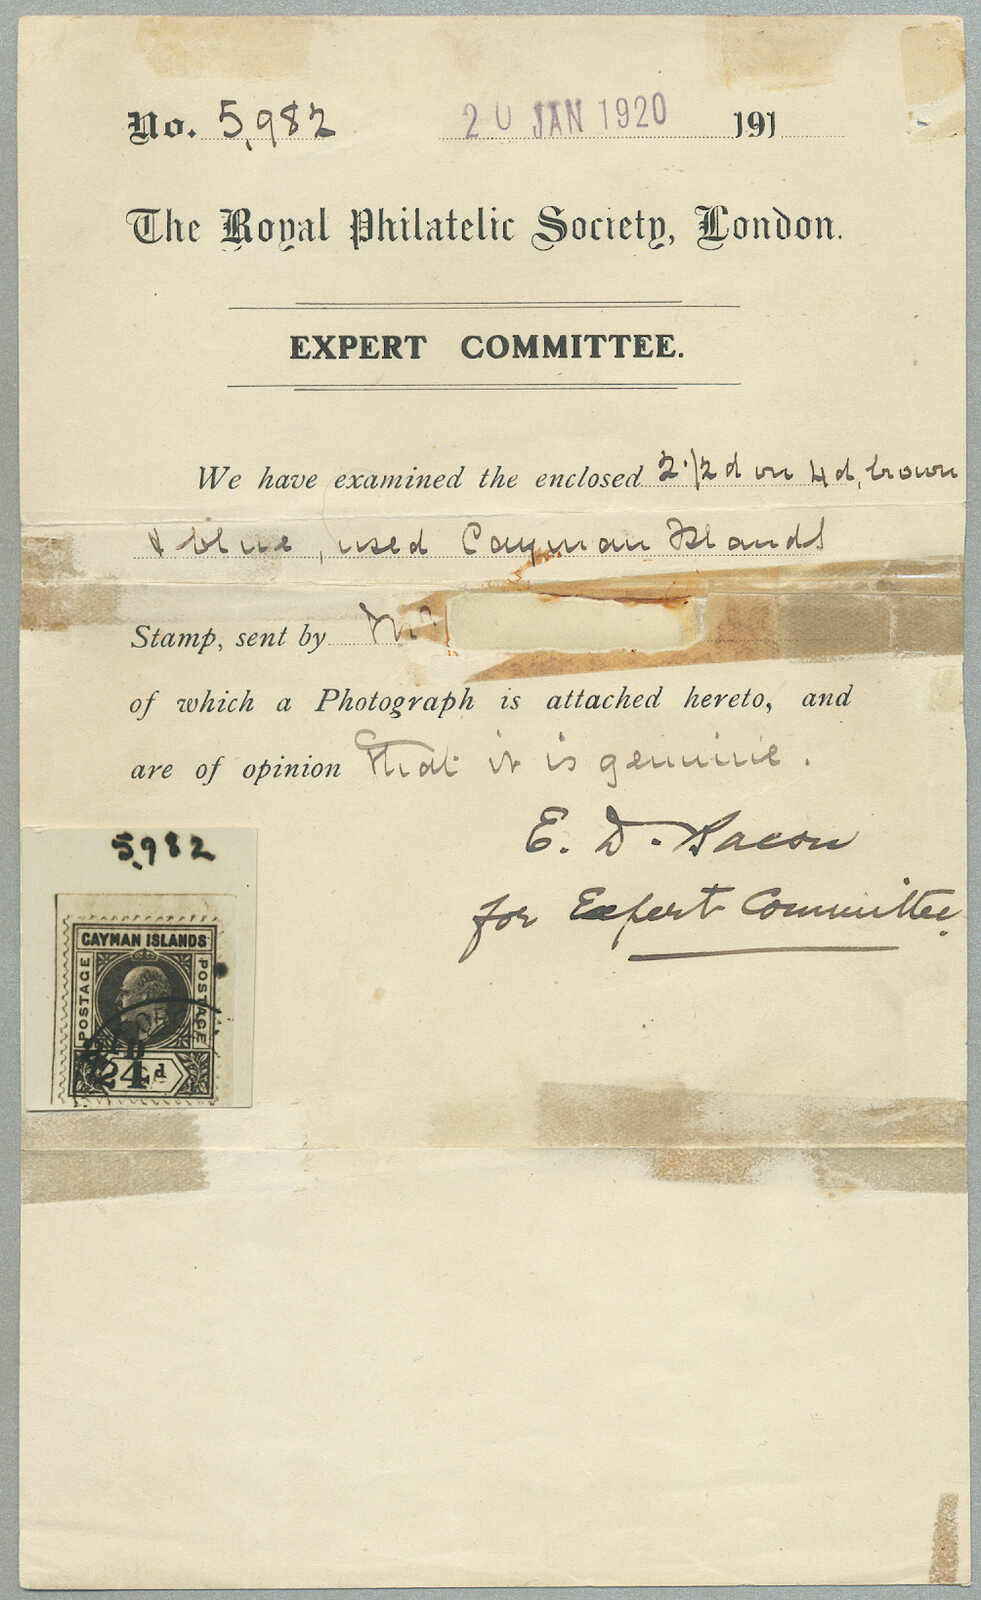 No. 5,982 20 JAN 1920 191
The Royal Philatelic Society, London.
EXPERT COMMITTEE.
We have examined the enclosed 2·1/2d on 4d, brown
& blue, used Cayman Islands
Stamp, sent by Mr
of which a Photograph is attached hereto, and
are of opinion that it is genuine.
E. D. Bacon
for Expert Committee.
5,982
CAYMAN ISLANDS
POSTAGE
POSTAGE
4d